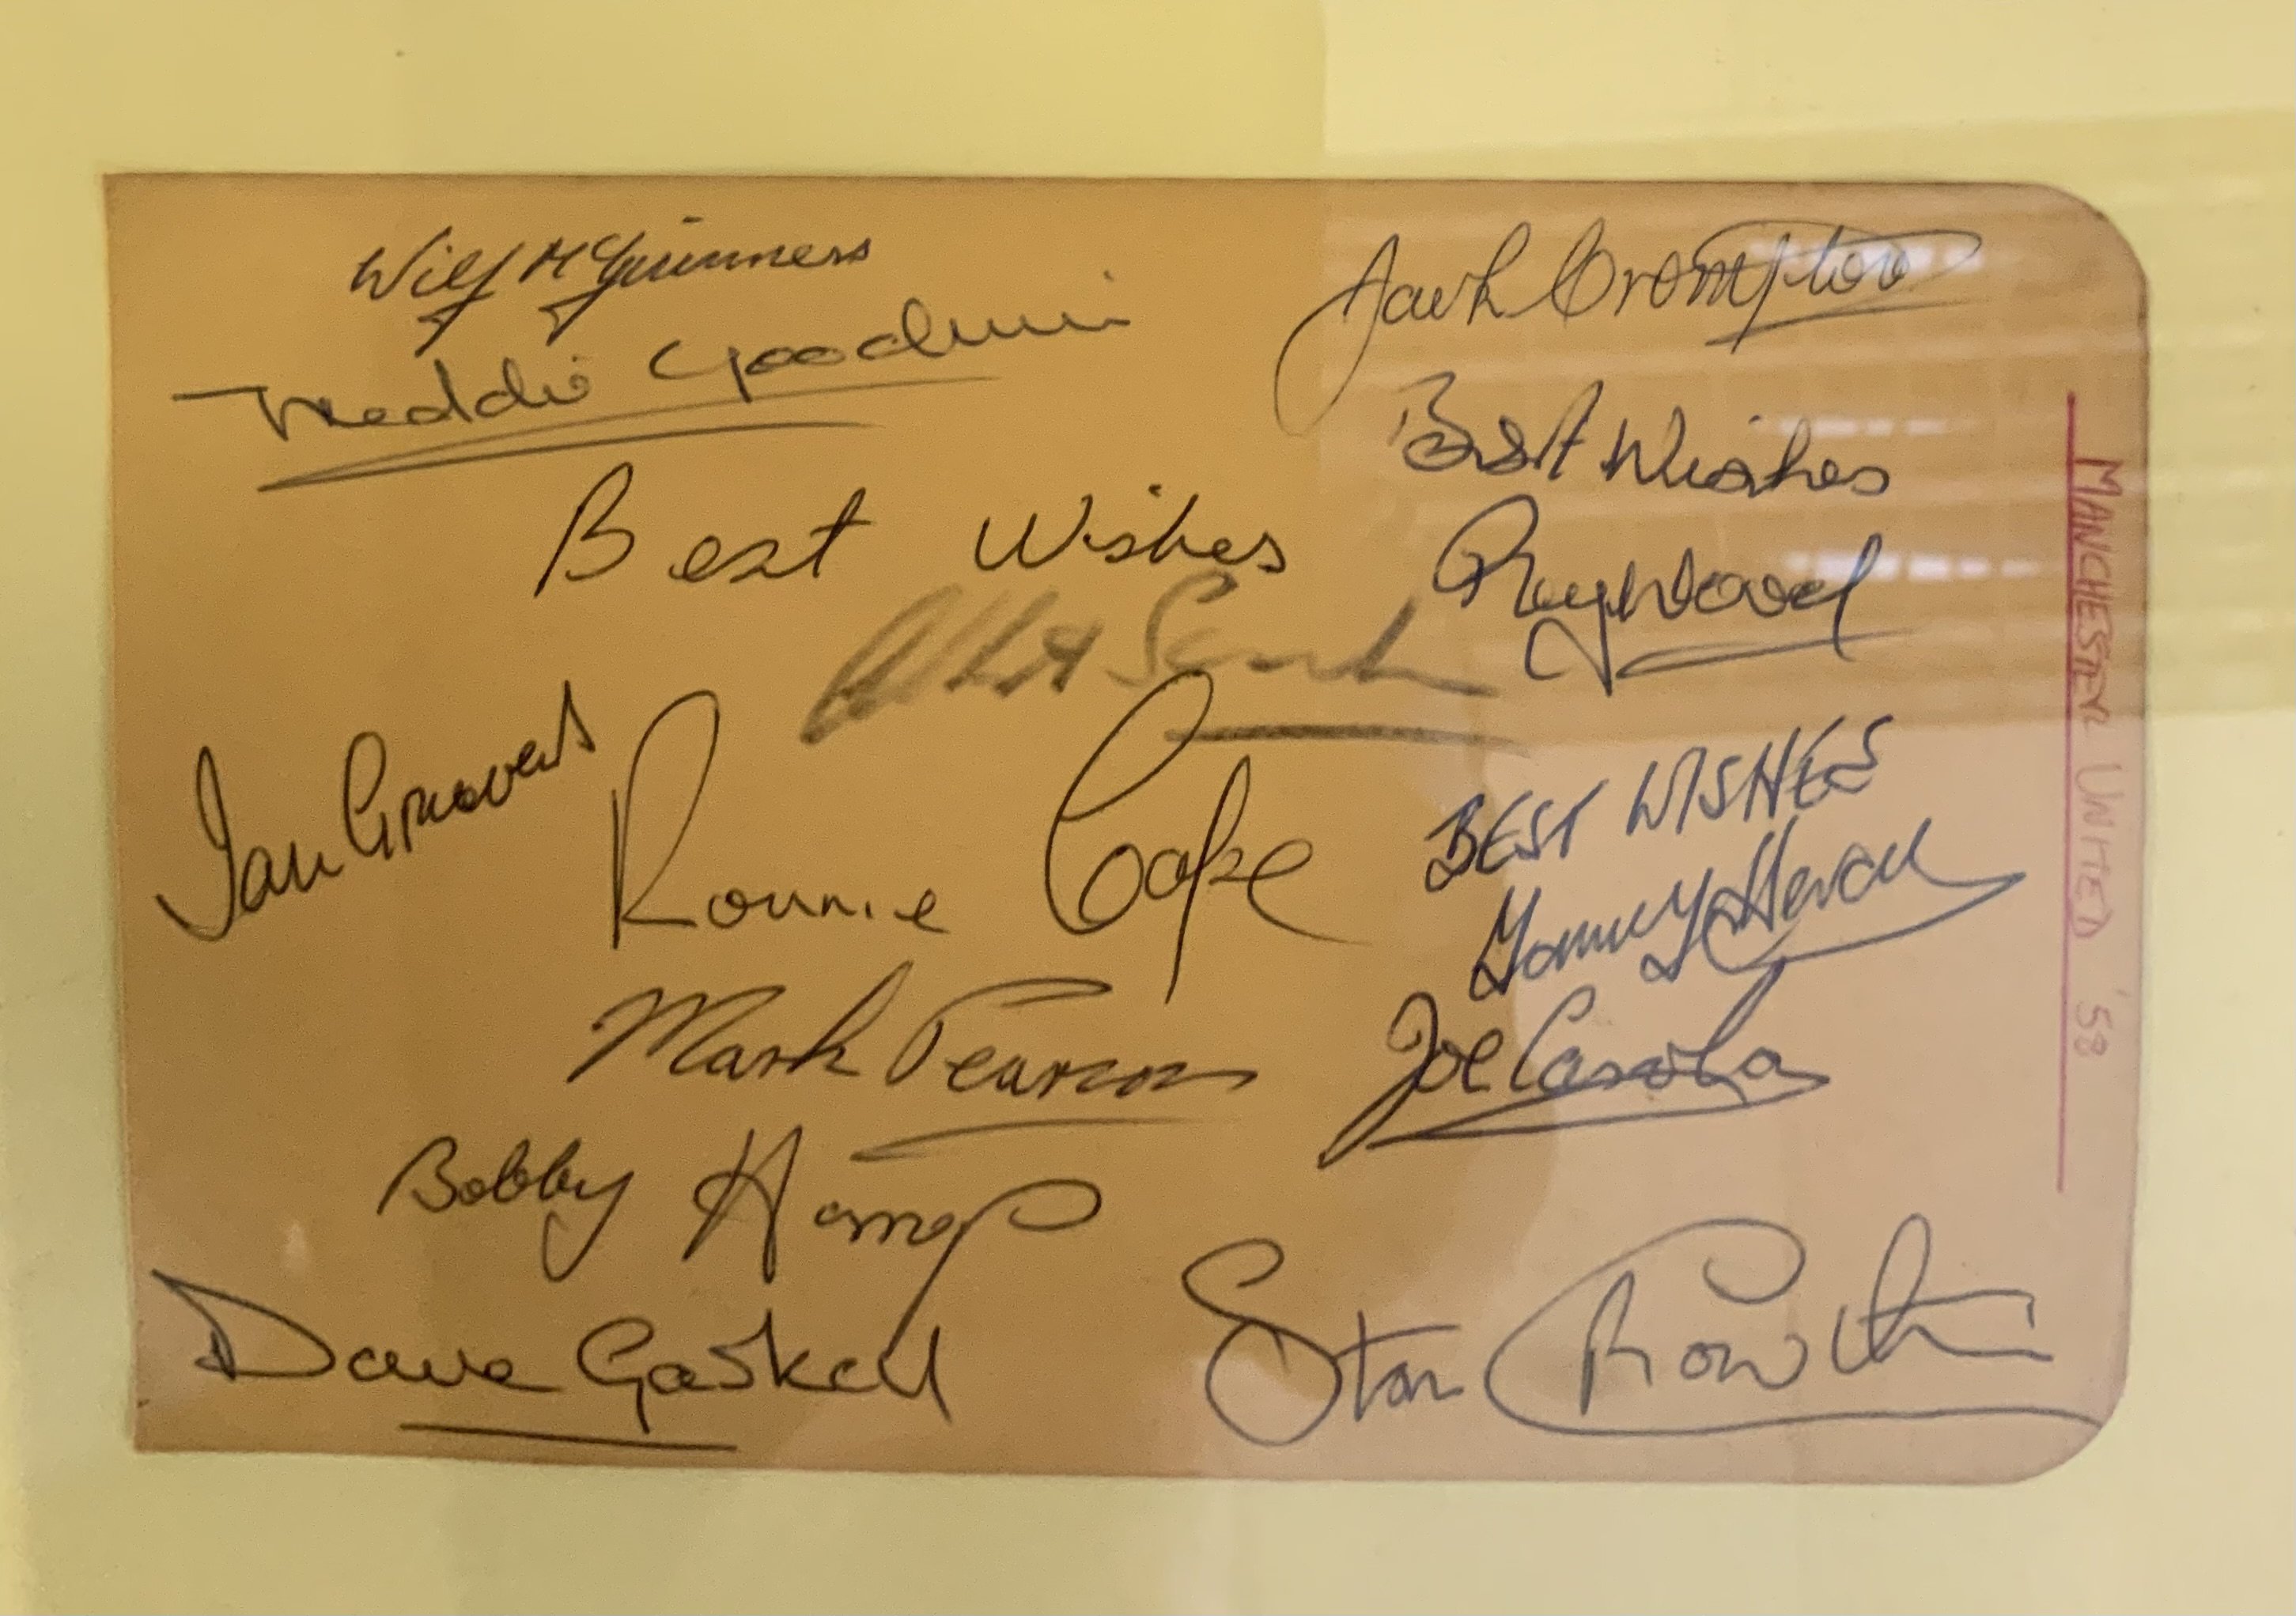 Wilf McGuinness
Freddie Goodwin
Best Wishes
Ian Greaves
Ronnie Cope
Mark Pearson
Bobby Harrop
Dave Gaskell
Jack Crompton
Best Wishes
Ray Wood
BEST WISHES
Tommy Heron
Joe Carolan
Stan Crowther
MANCHESTER UNITED '58